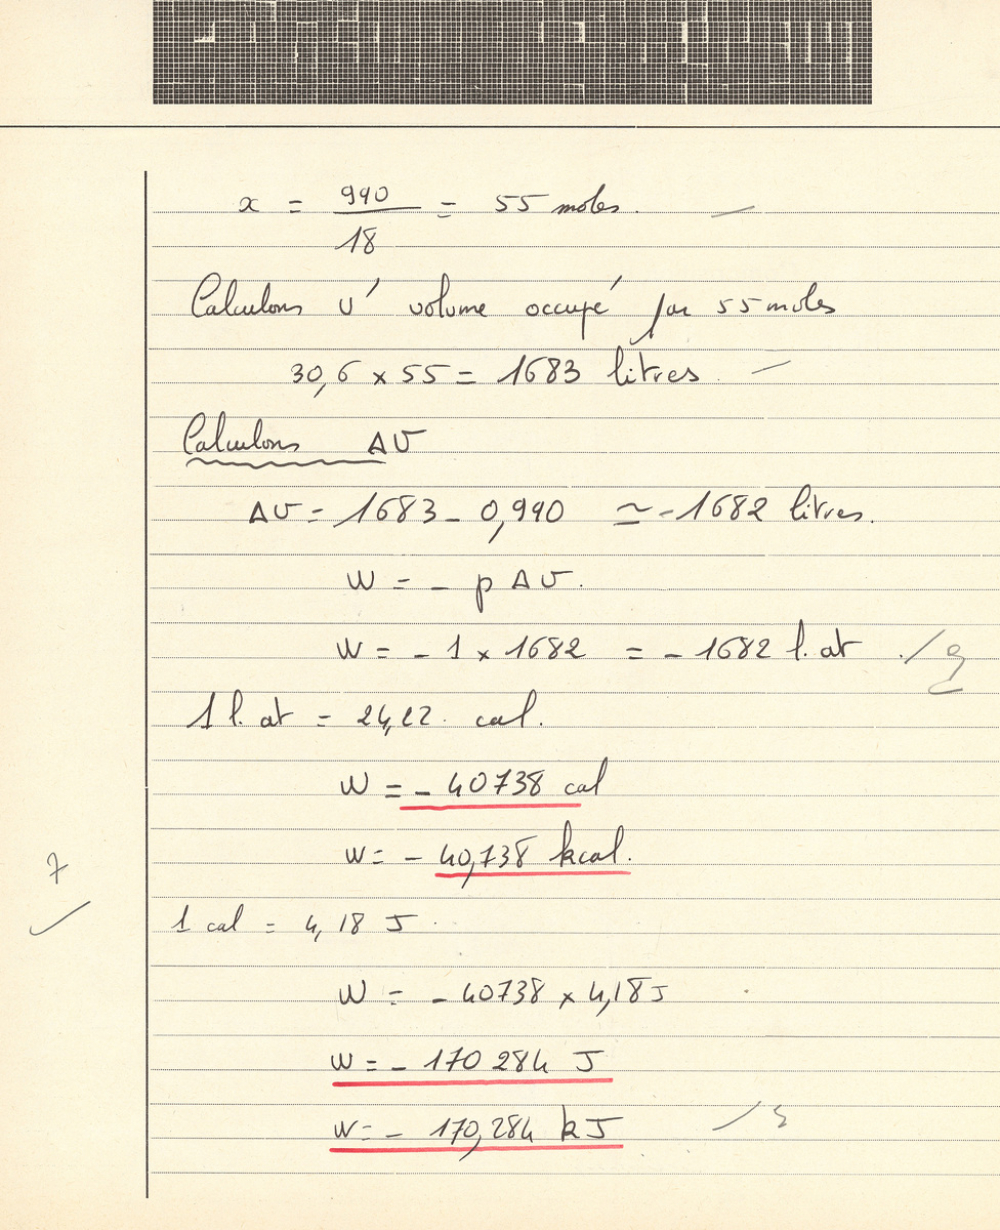 x = 990 / 18 = 55 moles.
Calculons v' volume occupé par 55 moles
30,6 x 55 = 1683 litres
Calculons ΔV
ΔV = 1683 - 0,990 ≃ -1682 litres.
W = - p ΔV.
W = - 1 x 1682 = - 1682 l.at ./
1 l. at = 24,22 cal.
W = - 40738 cal
W = - 40,738 kcal.
7
1 cal = 4,18 J
W = - 40738 x 4,18 J
W = - 170 284 J
W = - 170,284 kJ